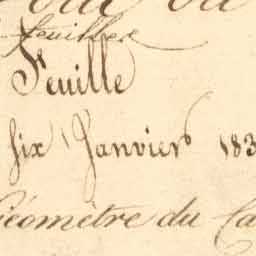 feuilles
Feuille
six Janvier 183
Géomètre du Ca